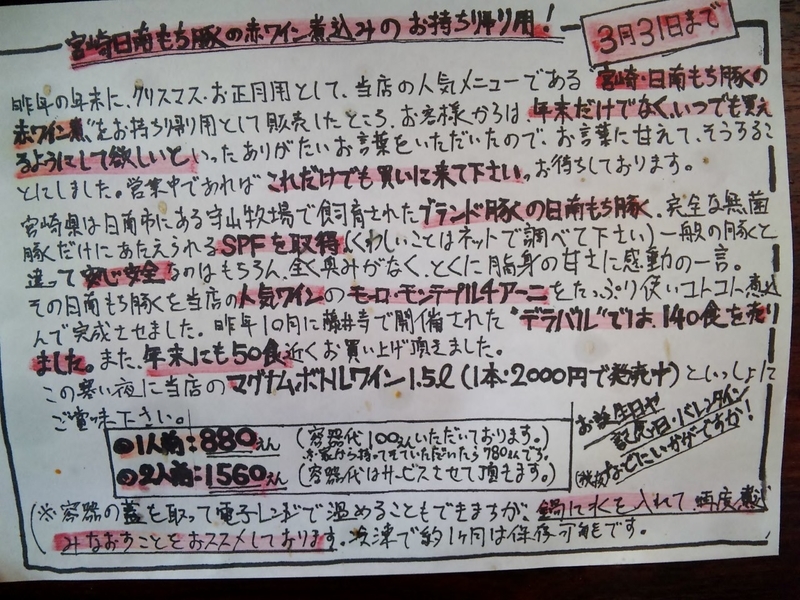 宮崎日南もち豚の赤ワイン煮込みのお持ち帰り用！
3月31日まで
昨年の年末に、クリスマス・お正月用として、当店の人気メニューである"宮崎・日南もち豚の
赤ワイン煮"をお持ち帰り用として販売したところ、お客様からは、年末だけでなく、いつでも買え
るようにして欲しいといったありがたいお言葉をいただいたので、お言葉に甘えて、そうするこ
とにしました。営業中であればこれだけでも買いに来て下さい。お待ちしております。
宮崎県は日南市にある守山牧場で飼育されたブランド豚の日南もち豚、完全な無菌
豚だけにあたえられるSPFを取得(くわしいことはネットで調べて下さい)一般の豚と
違って安心安全なのはもちろん、全く臭みがなく、とくに脂身の甘さに感動の一言。
その日南もち豚を当店の人気ワインのモーロ・モンテプルチアーニをたっぷり使いコトコト煮込
んで完成させました。昨年10月に藤井寺で開催された"デラバル"では、140食を売り
ました。また、年末にも50食近くお買い上げ頂きました。
この寒い夜に当店のマグナムボトルワイン1.5ℓ(1本:2000円で発売中)といっしょに
ご賞味下さい。
お誕生日や
記念日・バレンタイン
などにいかがですか！
(税抜)
●1人前:880えん (容器代100えんいただいております。)
※家から持ってきていただいたら780えんです。
●2人前:1560えん (容器代はサービスさせて頂きます。)
(※容器の蓋を取って電子レンジで温めることもできまちが、鍋に水を入れて再度煮込
みなおすことをおススメしております。冷凍で約1ヶ月は保存可能です。